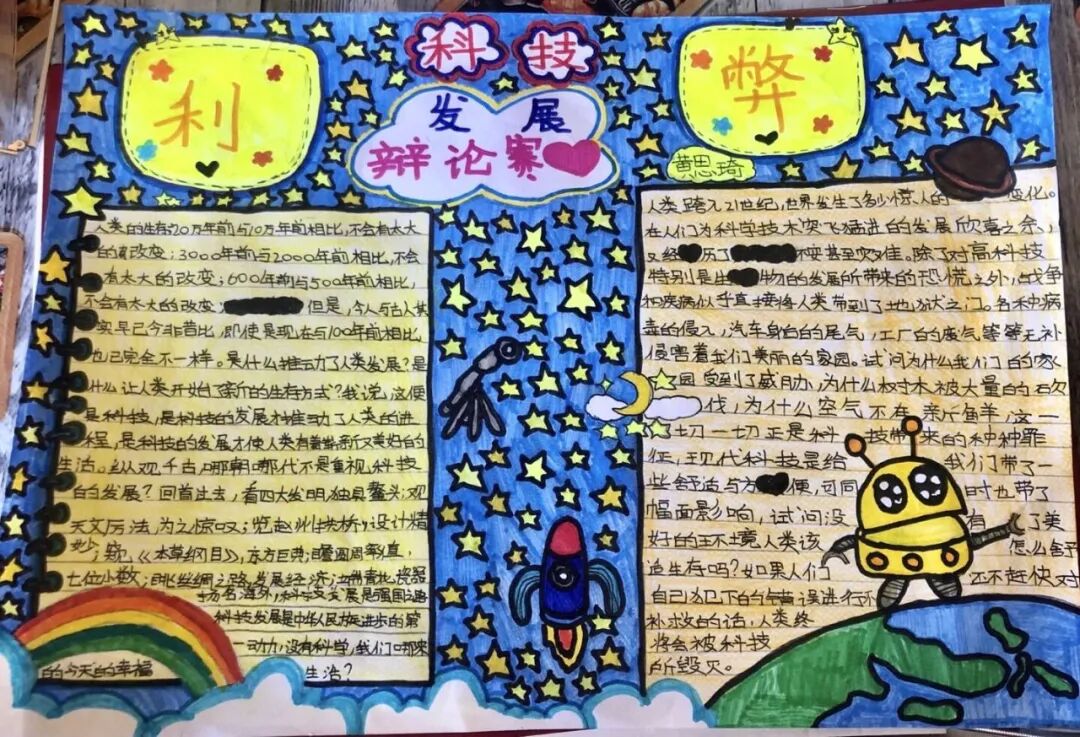 科技
发展
辩论赛
利
弊
黄思琦
人类的生存20万年前与10万年前相比,不会有太大
的改变;3000年前与2000年前相比,不会
有太大的改变;600年前与500年前相比,
不会有太大的改变; 但是,今人与古人其
实早已今非昔比,即使是现在与100年前相比
也已完全不一样。是什么推动了人类发展?是
什么让人类开始了新的生存方式?我说,这便
是科技,是科技的发展才推动了人类的进
程,是科技的发展才使人类有着崭新又美好的
生活。纵观千古,哪朝哪代不是重视科技
的发展?回首过去,看四大发明独具鳌头;观
天文历法,为之惊叹;览赵州拱桥,设计精
妙;野,《本草纲目》,东方巨典;瞻圆周率值,
七位小数;眺丝绸之路,发展经济;
扬名海外,科技发展是强国
科技发展是中华人民族进步的第
一动力,没有科学,我们哪来
的今天的幸福 生活?
人类跨入21世纪,世界发生了多少惊人的变化。
在人们为科学技术突飞猛进的发展欣喜之余,
又经历了 不安甚至灾难。除了对高科技
特别是生物的发展所带来的恐慌之外,战争
和疾病似乎直接将人类带到了地狱之门。各种病
毒的侵入,汽车的尾气,工厂的废气等等无不
侵害着我们美丽的家园。试问为什么我们的家
园受到了威胁,为什么树木被大量的砍
伐,为什么空气不在新鲜,这一
切一切正是科技带来的种种罪
征,现代科技是给我们带了一
些舒适与方便,可同时也带了
幅面影响,试问没有了美
好的环境人类该怎么舍予
造生存吗?如果人们还不赶快对
自己犯下的错误进行
补救的话,人类终
将会被科技
所毁灭。